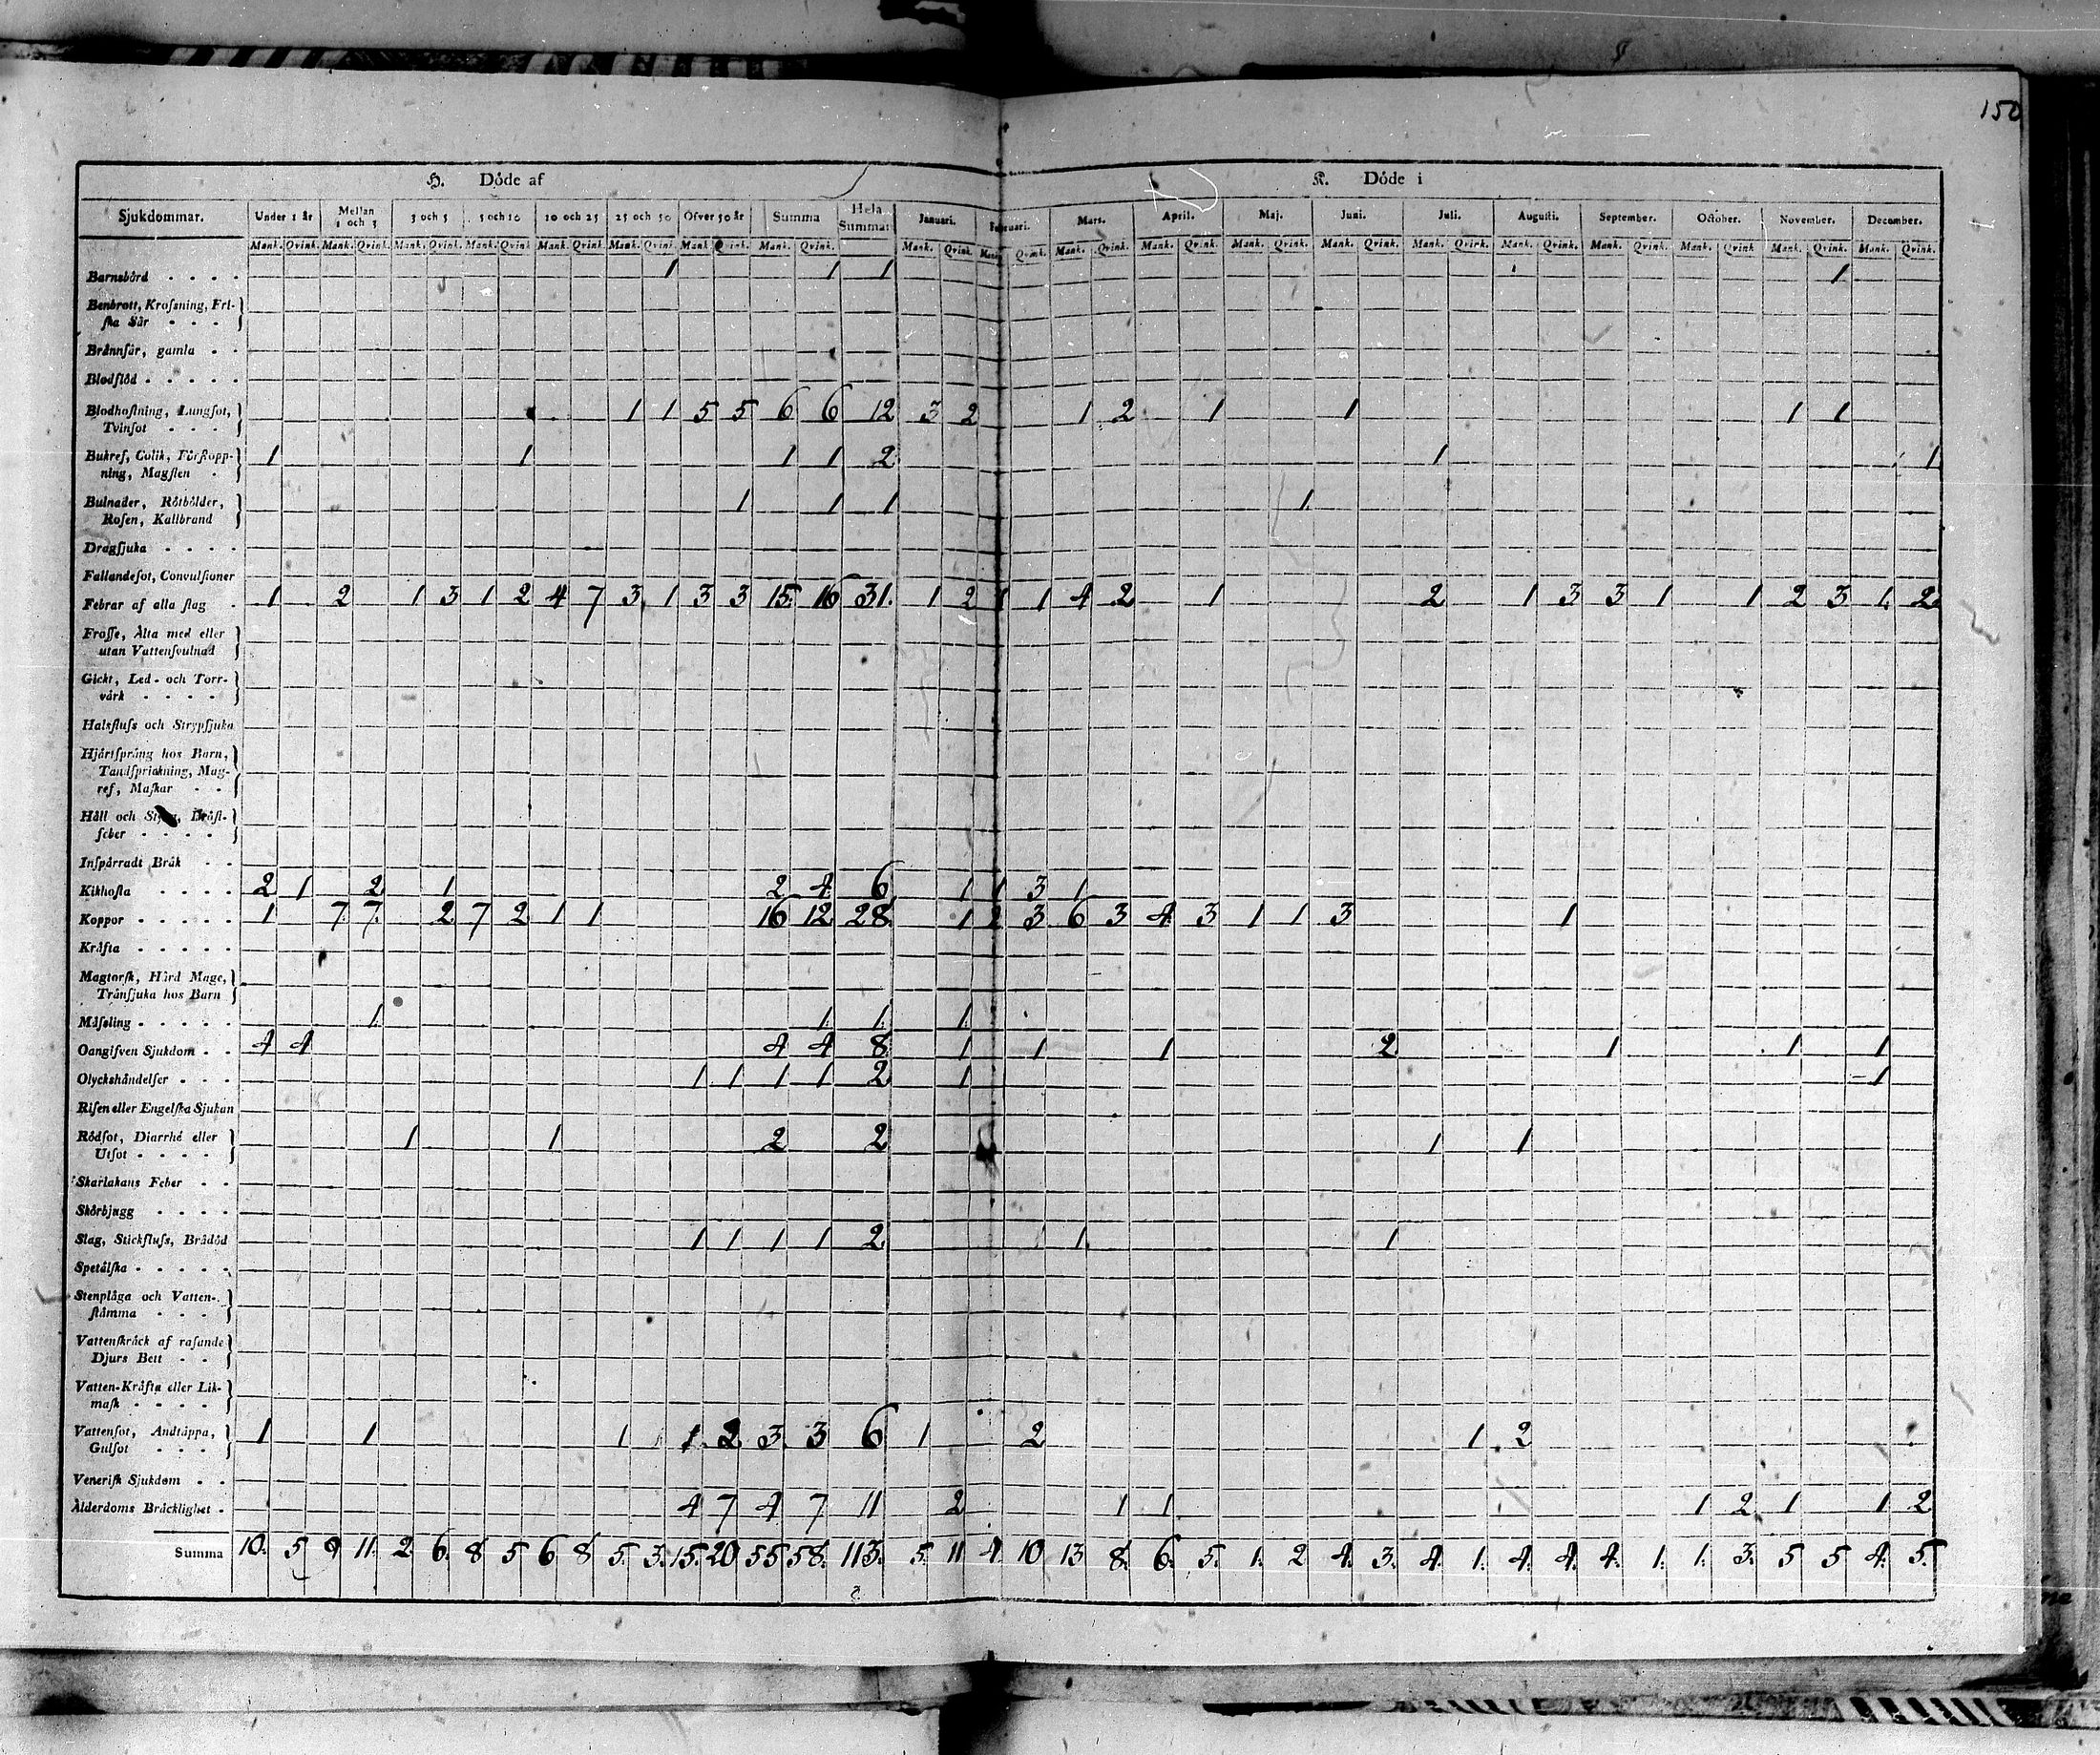 150
H. Döde af K. Döde i
Sjukdommar. Under 1 år Mellan 1 och 3 3 och 5 5 och 10 10 och 25 25 och 50 Öfver 50 år Summa Hela Summan Januari. Februari. Mart. April. Maj. Juni. Juli. Augusti. September. October. November. December.
Mank. Qvink. Mank. Qvink. Mank. Qvink. Mank. Qvink. Mank. Qvink. Mank. Qvink. Mank. Qvink. Mank. Qvink. Mank. Qvink. Mank. Qvink. Mank. Qvink. Mank. Qvink. Mank. Qvink. Mank. Qvink. Mank. Qvink. Mank. Qvink. Mank. Qvink. Mank. Qvink. Mank. Qvink. Mank. Qvink.
Barnsbörd 1 1 1 1
Benbrott, Krosning, Fri-
ska Sår
Brännsår, gamla
Blodflöd
Blodhostning, Lungsot, 1 1 5 5 6 6 12 3 2 1 2 1 1 1 1
Tvinsot
Bukref, Colik, Förstopp- 1 1 1 1 2 1 1
ning, Magsten
Bulnader, Rötbölder, 1 1 1 1
Rosen, Kallbrand
Dragsjuka
Fallandesot, Convulsioner
Febrar af alla slag 1 2 1 3 1 2 4 7 3 1 3 3 15. 16 31. 1 2 1 1 4 2 1 2 1 3 3 1 1 2 3 1. 2.
Frosse, Älta med eller
utan Vattensvulnad
Gickt, Led- och Torr-
värk
Halsfluss och Strypsjuka
Hjärtsprång hos Barn,
Tandsprickning, Mag-
ref, Maskar
Håll och Styng, Bröst-
feber
Inspärradt Bråk
Kikhosta 2 1 2 1 2 4 6 1 1 3 1
Koppor 1 7 7 2 7 2 1 1 16 12 28 1 2 3 6 3 4 3 1 1 3 1
Kräfta
Magtorsk, Hård Mage,
Tränsjuka hos Barn
Mässling 1 1 1 1
Oangifven Sjukdom 4 4 4 4 8 1 1 1 2 1 1 1
Olyckshändelser 1 1 1 1 2 1 1
Risen eller Engelska Sjukan
Rödsot, Diarrhé eller 1 1 2 2 1 1
Utsot
Skarlakans Feber
Skörbjugg
Slag, Stickfluss, Brådöd 1 1 1 1 2 1 1
Spetälska
Stenplåga och Vatten-
stämma
Vattenskräck af rasande
Djurs Bett
Vatten-Kräfta eller Lik-
mask
Vattensot, Andtäppa, 1 1 1 1 2 3 3 6 1 2 1 2
Gulsot
Venerisk Sjukdom
Ålderdoms Bräcklighet 4 7 4 7 11 2 1 1 1 2 1 1 2
Summa 10. 5 9 11. 2 6. 8 5 6 8 5. 3. 15. 20 55 58. 113. 5. 11 4 10 13 8. 6. 5. 1. 2 4. 3. 4. 1. 4. 4. 4. 1. 1. 3. 5 5 4. 5.